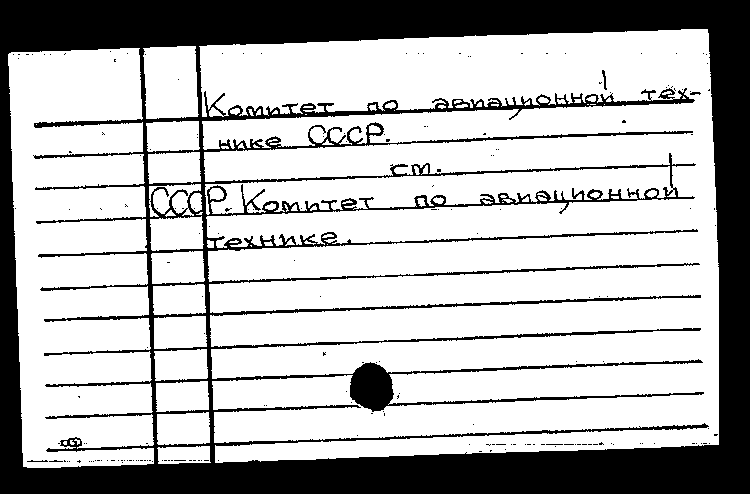 Комитет по авиационной тех-
нике СССР.
см.
СССР. Комитет по авиационной
технике.